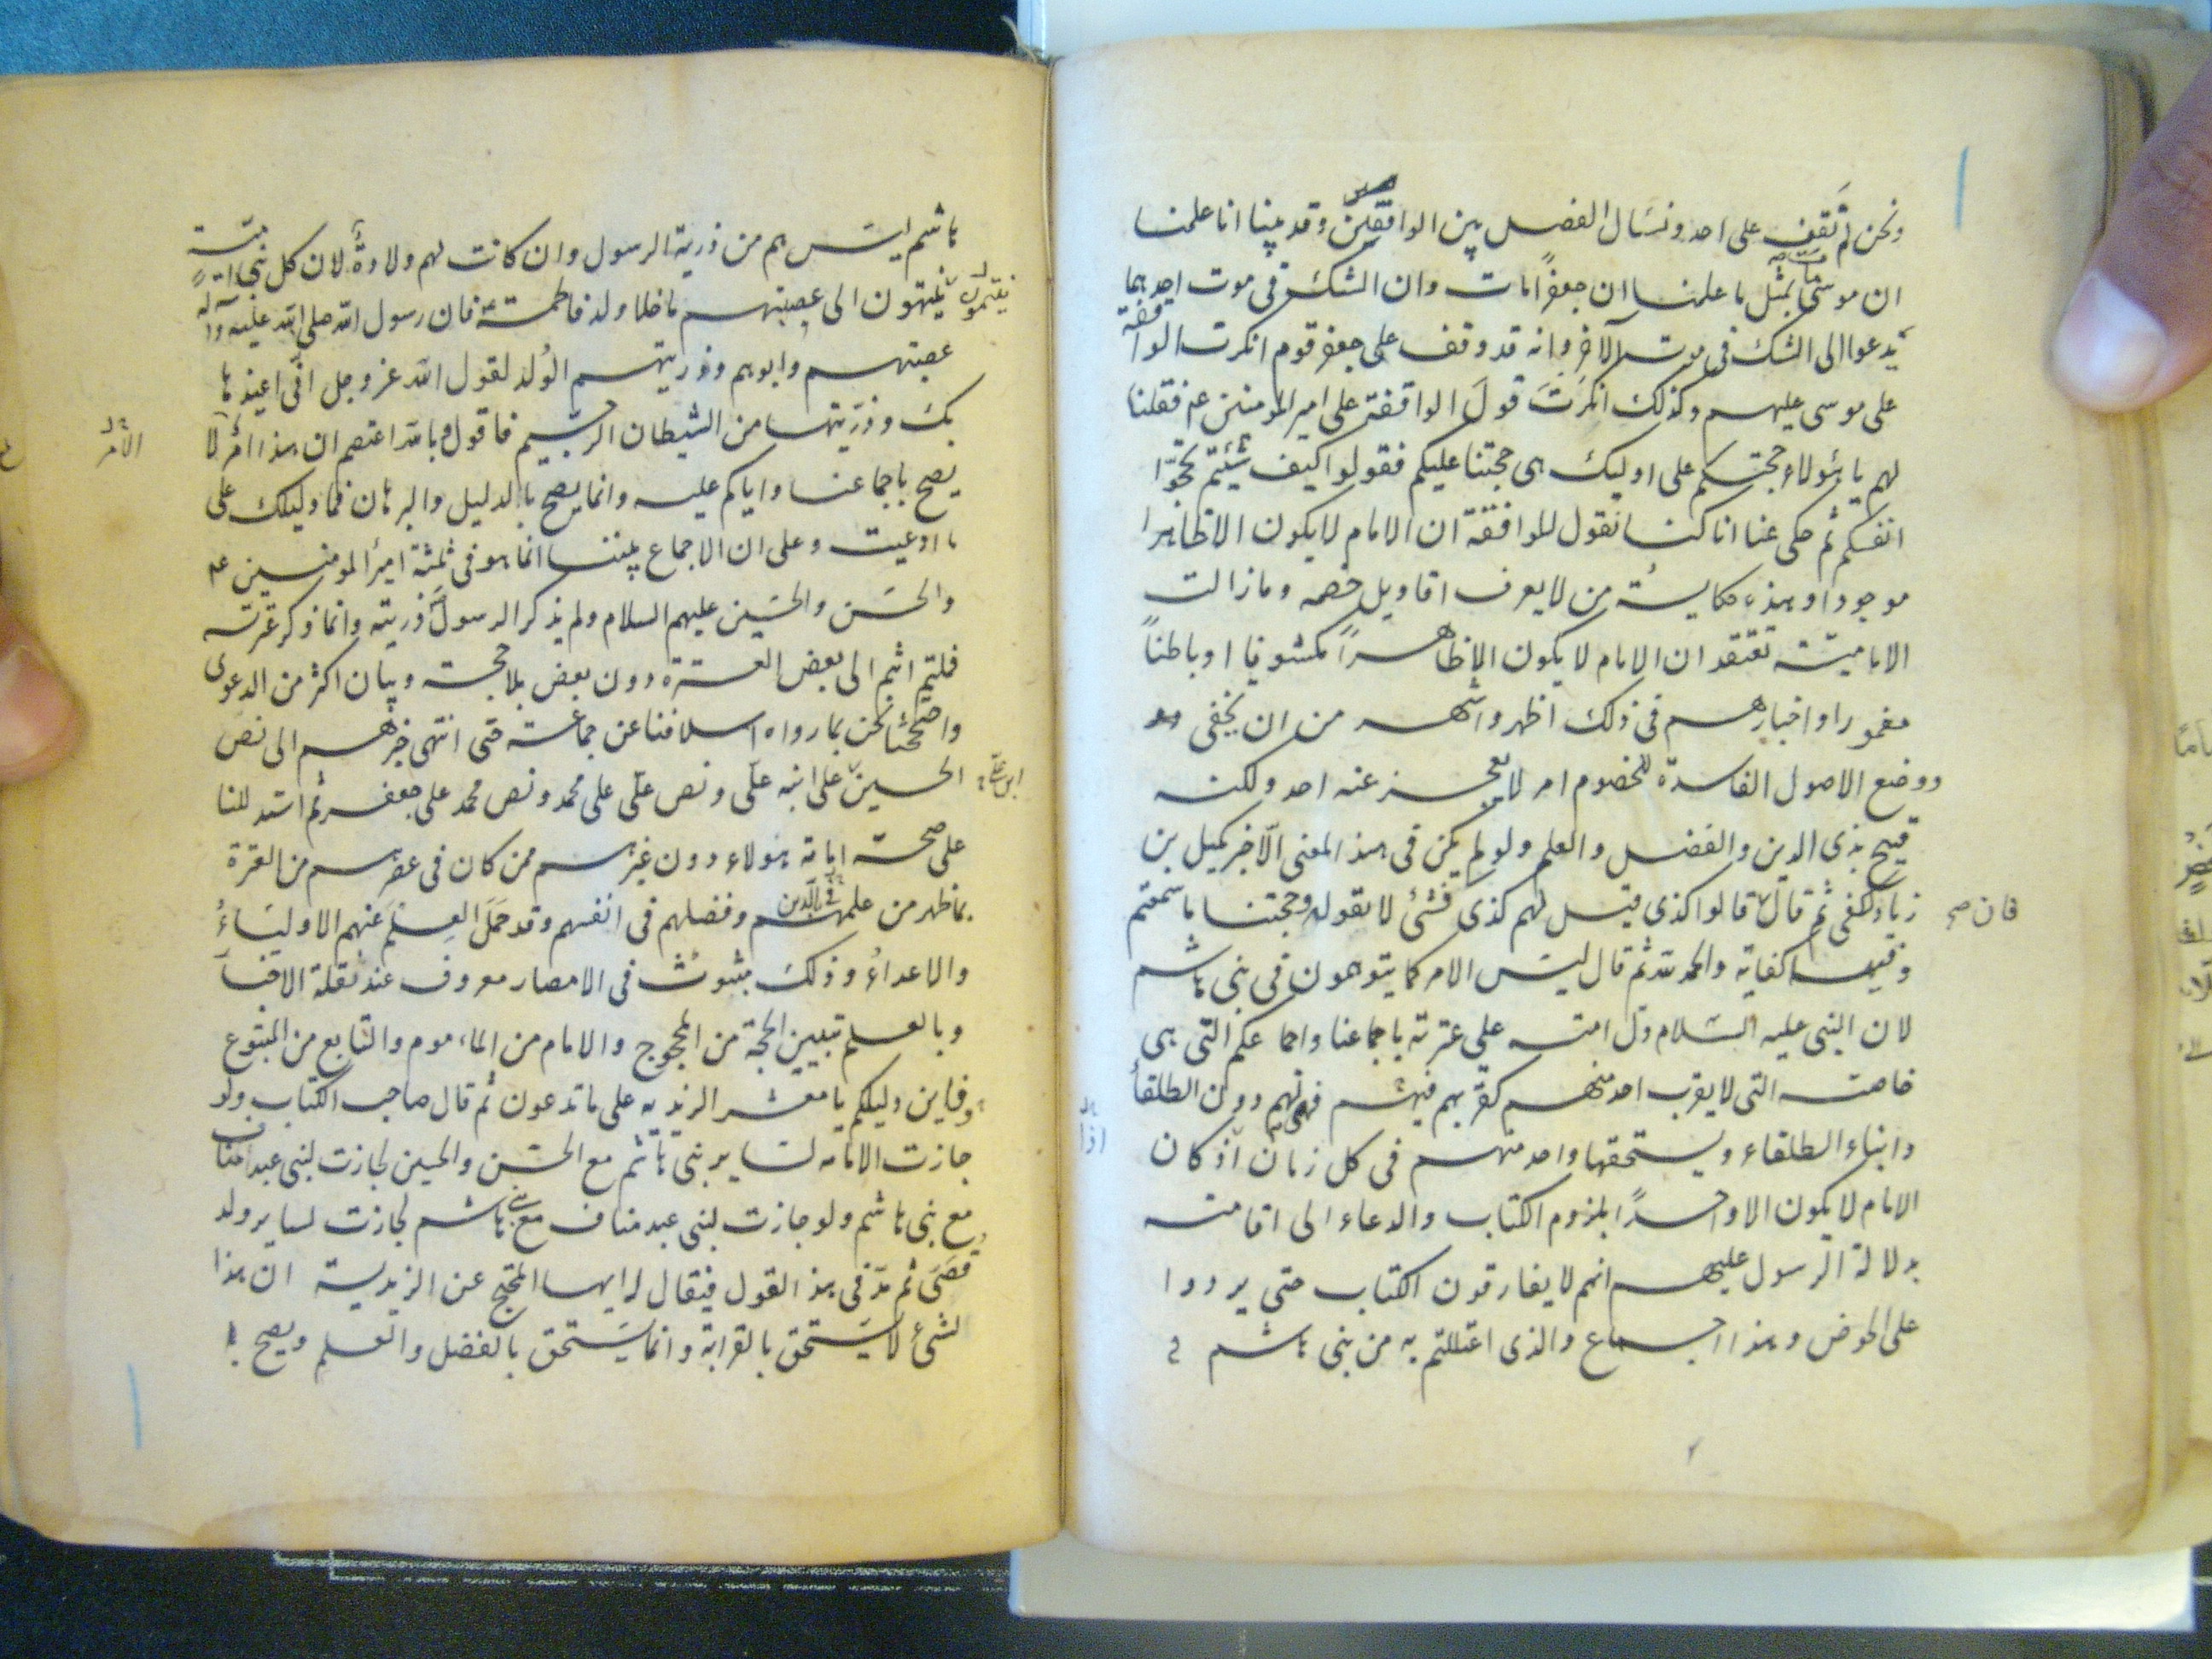 ونحن لم نقف على احد ونسال الفصل بين الواقفين وقد بينا انا علمنا
ان موسى مات بمثل ما علمنا ان جعفرا مات وان الشك فى موت احدهما
يدعوا الى الشك فى موت الآخر وانه قد وقف على جعفر قوم انكرت الواقفة
على موسى عليهم وكذلك انكرت قول الواقفة على امير المومنين ع فقلنا
لهم يا هؤلاء حجتكم على اوليك هى حجتنا عليكم فقولوا كيف شيئتم تحجوا
انفسكم ثم حكى عنا انا كنا نقول للواقفة ان الامام لا يكون الا ظاهرا
موجودا وهذه حكاية من لا يعرف اقاويل خصمه وما زالت
الامامية تعتقد ان الامام لا يكون الا ظاهرا مكشوفا او باطنا
مغمورا واخبارهم فى ذلك اظهر واشهر من ان يخفى
ووضع الاصول الفاسدة للخصوم امر لا يعجز عنه احد ولكنه
قبيح بذى الدين والفضل والعلم ولو لم يكن فى هذا المعنى الا خبر كميل بن
زياد لكفى ثم قال فان قالوا كذى قيل لهم كذى فشئ لا نقوله وحجتنا ما سمعتم
فان صح
وفيها كفاية والحمد لله ثم قال ليس الامر كما يتوهمون فى بنى هاشم
لان النبى عليه السلام دل امته على عترته باجماعنا واجماعكم التى هى
خاصته التى لا يقرب احد منهم كقربهم فهى لهم دون الطلقا
وابناء الطلقاء ويستحقها واحد منهم فى كل زمان اذ كان
اذا
الامام لا يكون الا واحدا بلزوم الكتاب والدعاء الى اقامته
بدلالة الرسول عليهم انهم لا يفارقون الكتاب حتى يردوا
على الحوض وهذا اجماع والذى اعتللتم به من بنى هاشم
هاشم ليس هم من ذرية الرسول وان كانت لهم ولادة لان كل بنى ابنة
ينتمون الى عصبتهم ما خلا ولد فاطمة فان رسول الله صلى الله عليه وآله
عصبتهم وابوهم وذريتهم الولد لقول الله عز وجل انى اعيذها
بك وذريتها من الشيطان الرجيم فاقول وبالله اعتصم ان هذا امر لا
الامر
يصح باجماعنا واياكم عليه وانما يصح بالدليل والبرهان فما دليلك على
ما ادعيت وعلى ان الاجماع بيننا انما هو فى ثلثة امير المومنين ع
والحسن والحسين عليهم السلام ولم يذكر الرسول ذريته وانما ذكر عترته
فملتم انتم الى بعض العترة دون بعض بلا حجة وبيان اكثر من الدعوى
واحتججنا نحن بما رواه اسلافنا عن جماعة حتى انتهى خبرهم الى نص
الحسين على ابنه على ونص على على محمد ونص محمد على جعفر ثم استدللنا
ابن على
على صحة امامة هولاء دون غيرهم ممن كان فى عصرهم من العترة
بما ظهر من علمهم فى الدين وفضلهم فى انفسهم وقد حمل العلم عنهم الاولياء
والاعداء وذلك مبثوث فى الامصار معروف عند نقلة الاخبا
وبالعلم تبيين الحجة من المحجوج والامام من الماموم والتابع من المتبوع
فاين دليلكم يا معشر الزيدية على ما تدعون ثم قال صاحب الكتاب ولو
جازت الامامه لساير بنى هاشم مع الحسن والحسين لجازت لبنى عبد مناف
مع بنى هاشم ولو جازت لبنى عبد مناف مع بنى هاشم لجازت لساير ولد
قصى ثم مد فى هذا القول فيقال له ايها المحتج عن الزيدية ان هذا
لشئ لا يستحق بالقرابة وانما يستحق بالفضل والعلم ويصح